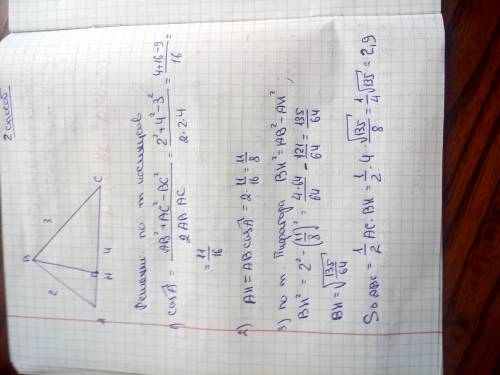 2 способ
B
2
3
A
H
4
C
Решение: по т косинусов
1) cosA = (AB² + AC² − BC²)/(2AB·AC) = (2² + 4² − 3²)/(2·2·4) = (4+16−9)/16
= 11/16
2) AH = AB cosA = 2·11/16 = 11/8
3) по т. Пифагора BH² = AB² − AH²,
BH² = 2² − (11/8)² = (4·64)/64 − 121/64 = 135/64
BH = √(135/64)
S△ABC = 1/2 AC·BH = 1/2 · 4 · √135/8 = 1/4 √135 = 2,9